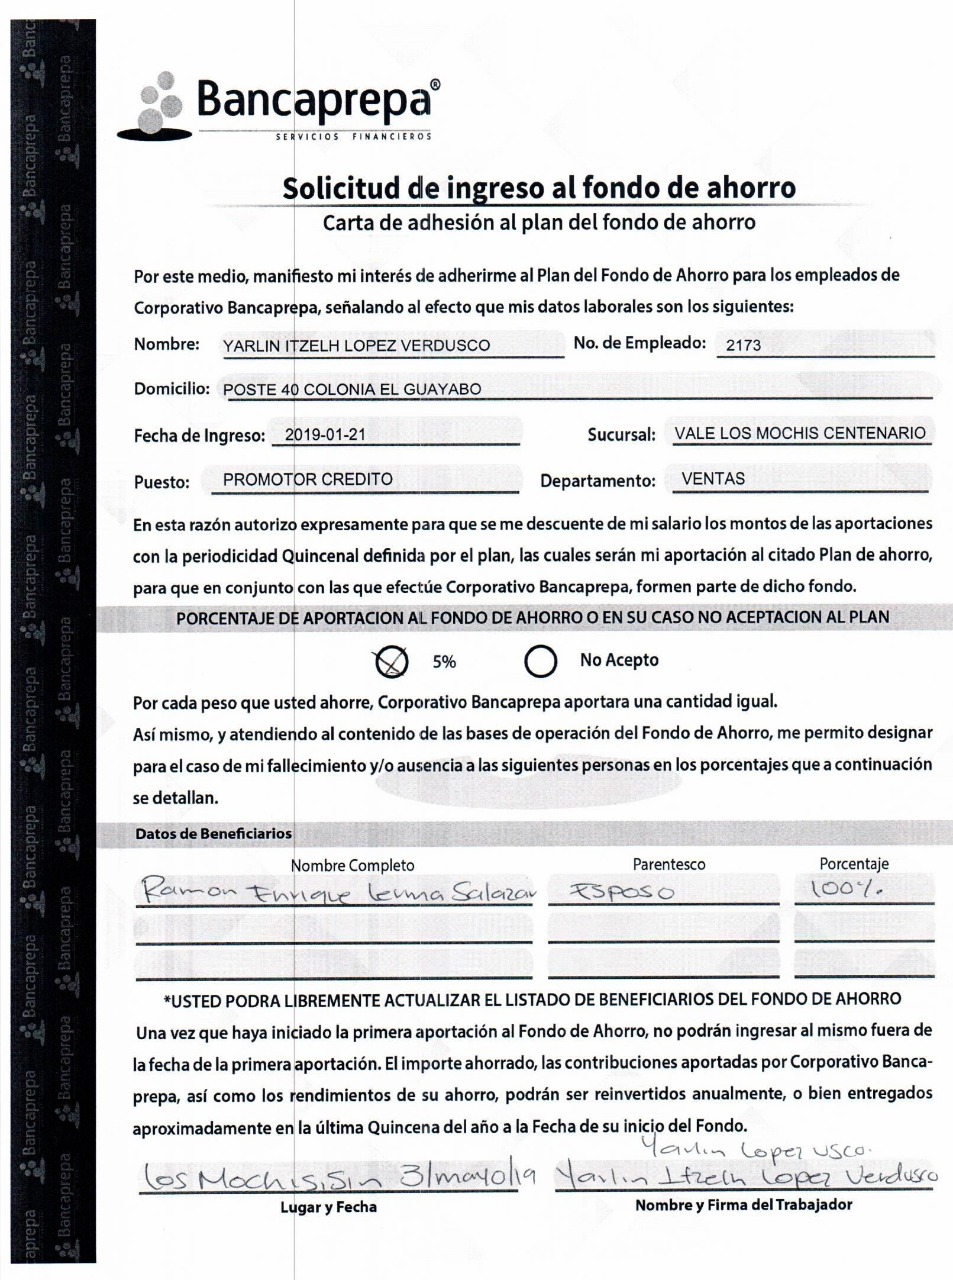 Bancaprepa®
SERVICIOS FINANCIEROS
Solicitud de ingreso al fondo de ahorro
Carta de adhesión al plan del fondo de ahorro
Por este medio, manifiesto mi interés de adherirme al Plan del Fondo de Ahorro para los empleados de
Corporativo Bancaprepa, señalando al efecto que mis datos laborales son los siguientes:
Nombre: YARLIN ITZELH LOPEZ VERDUSCO No. de Empleado: 2173
Domicilio: POSTE 40 COLONIA EL GUAYABO
Fecha de Ingreso: 2019-01-21 Sucursal: VALE LOS MOCHIS CENTENARIO
Puesto: PROMOTOR CREDITO Departamento: VENTAS
En esta razón autorizo expresamente para que se me descuente de mi salario los montos de las aportaciones
con la periodicidad Quincenal definida por el plan, las cuales serán mi aportación al citado Plan de ahorro,
para que en conjunto con las que efectúe Corporativo Bancaprepa, formen parte de dicho fondo.
PORCENTAJE DE APORTACION AL FONDO DE AHORRO O EN SU CASO NO ACEPTACION AL PLAN
5% No Acepto
Por cada peso que usted ahorre, Corporativo Bancaprepa aportara una cantidad igual.
Así mismo, y atendiendo al contenido de las bases de operación del Fondo de Ahorro, me permito designar
para el caso de mi fallecimiento y/o ausencia a las siguientes personas en los porcentajes que a continuación
se detallan.
Datos de Beneficiarios
Nombre Completo Parentesco Porcentaje
Ramon Enrique Lerma Salazar Esposo 100%
*USTED PODRA LIBREMENTE ACTUALIZAR EL LISTADO DE BENEFICIARIOS DEL FONDO DE AHORRO
Una vez que haya iniciado la primera aportación al Fondo de Ahorro, no podrán ingresar al mismo fuera de
la fecha de la primera aportación. El importe ahorrado, las contribuciones aportadas por Corporativo Banca-
prepa, así como los rendimientos de su ahorro, podrán ser reinvertidos anualmente, o bien entregados
aproximadamente en la última Quincena del año a la Fecha de su inicio del Fondo.
Yarlin Lopez Usco.
Los Mochis, Sin 31/mayo/19 Yarlin Itzelh Lopez Verdusco
Lugar y Fecha Nombre y Firma del Trabajador